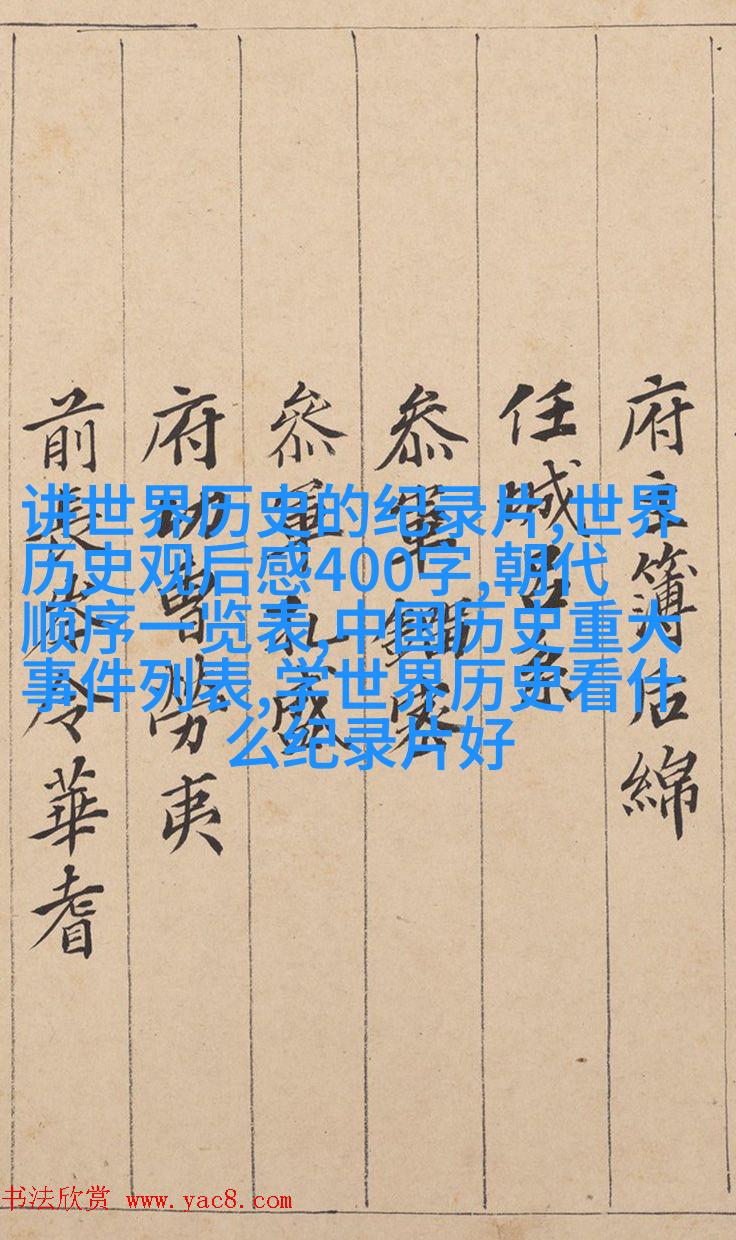 府主簿后綿
任城呂系
参軍
參軍孔盛
府功曹勞夷
前長岑令華耆
讲世界历史的纪录片,世界
历史观后感400字,朝代
顺序一览表,中国历史重大
事件列表,学世界历史看什
么纪录片好
书法欣赏 www.yac8.com